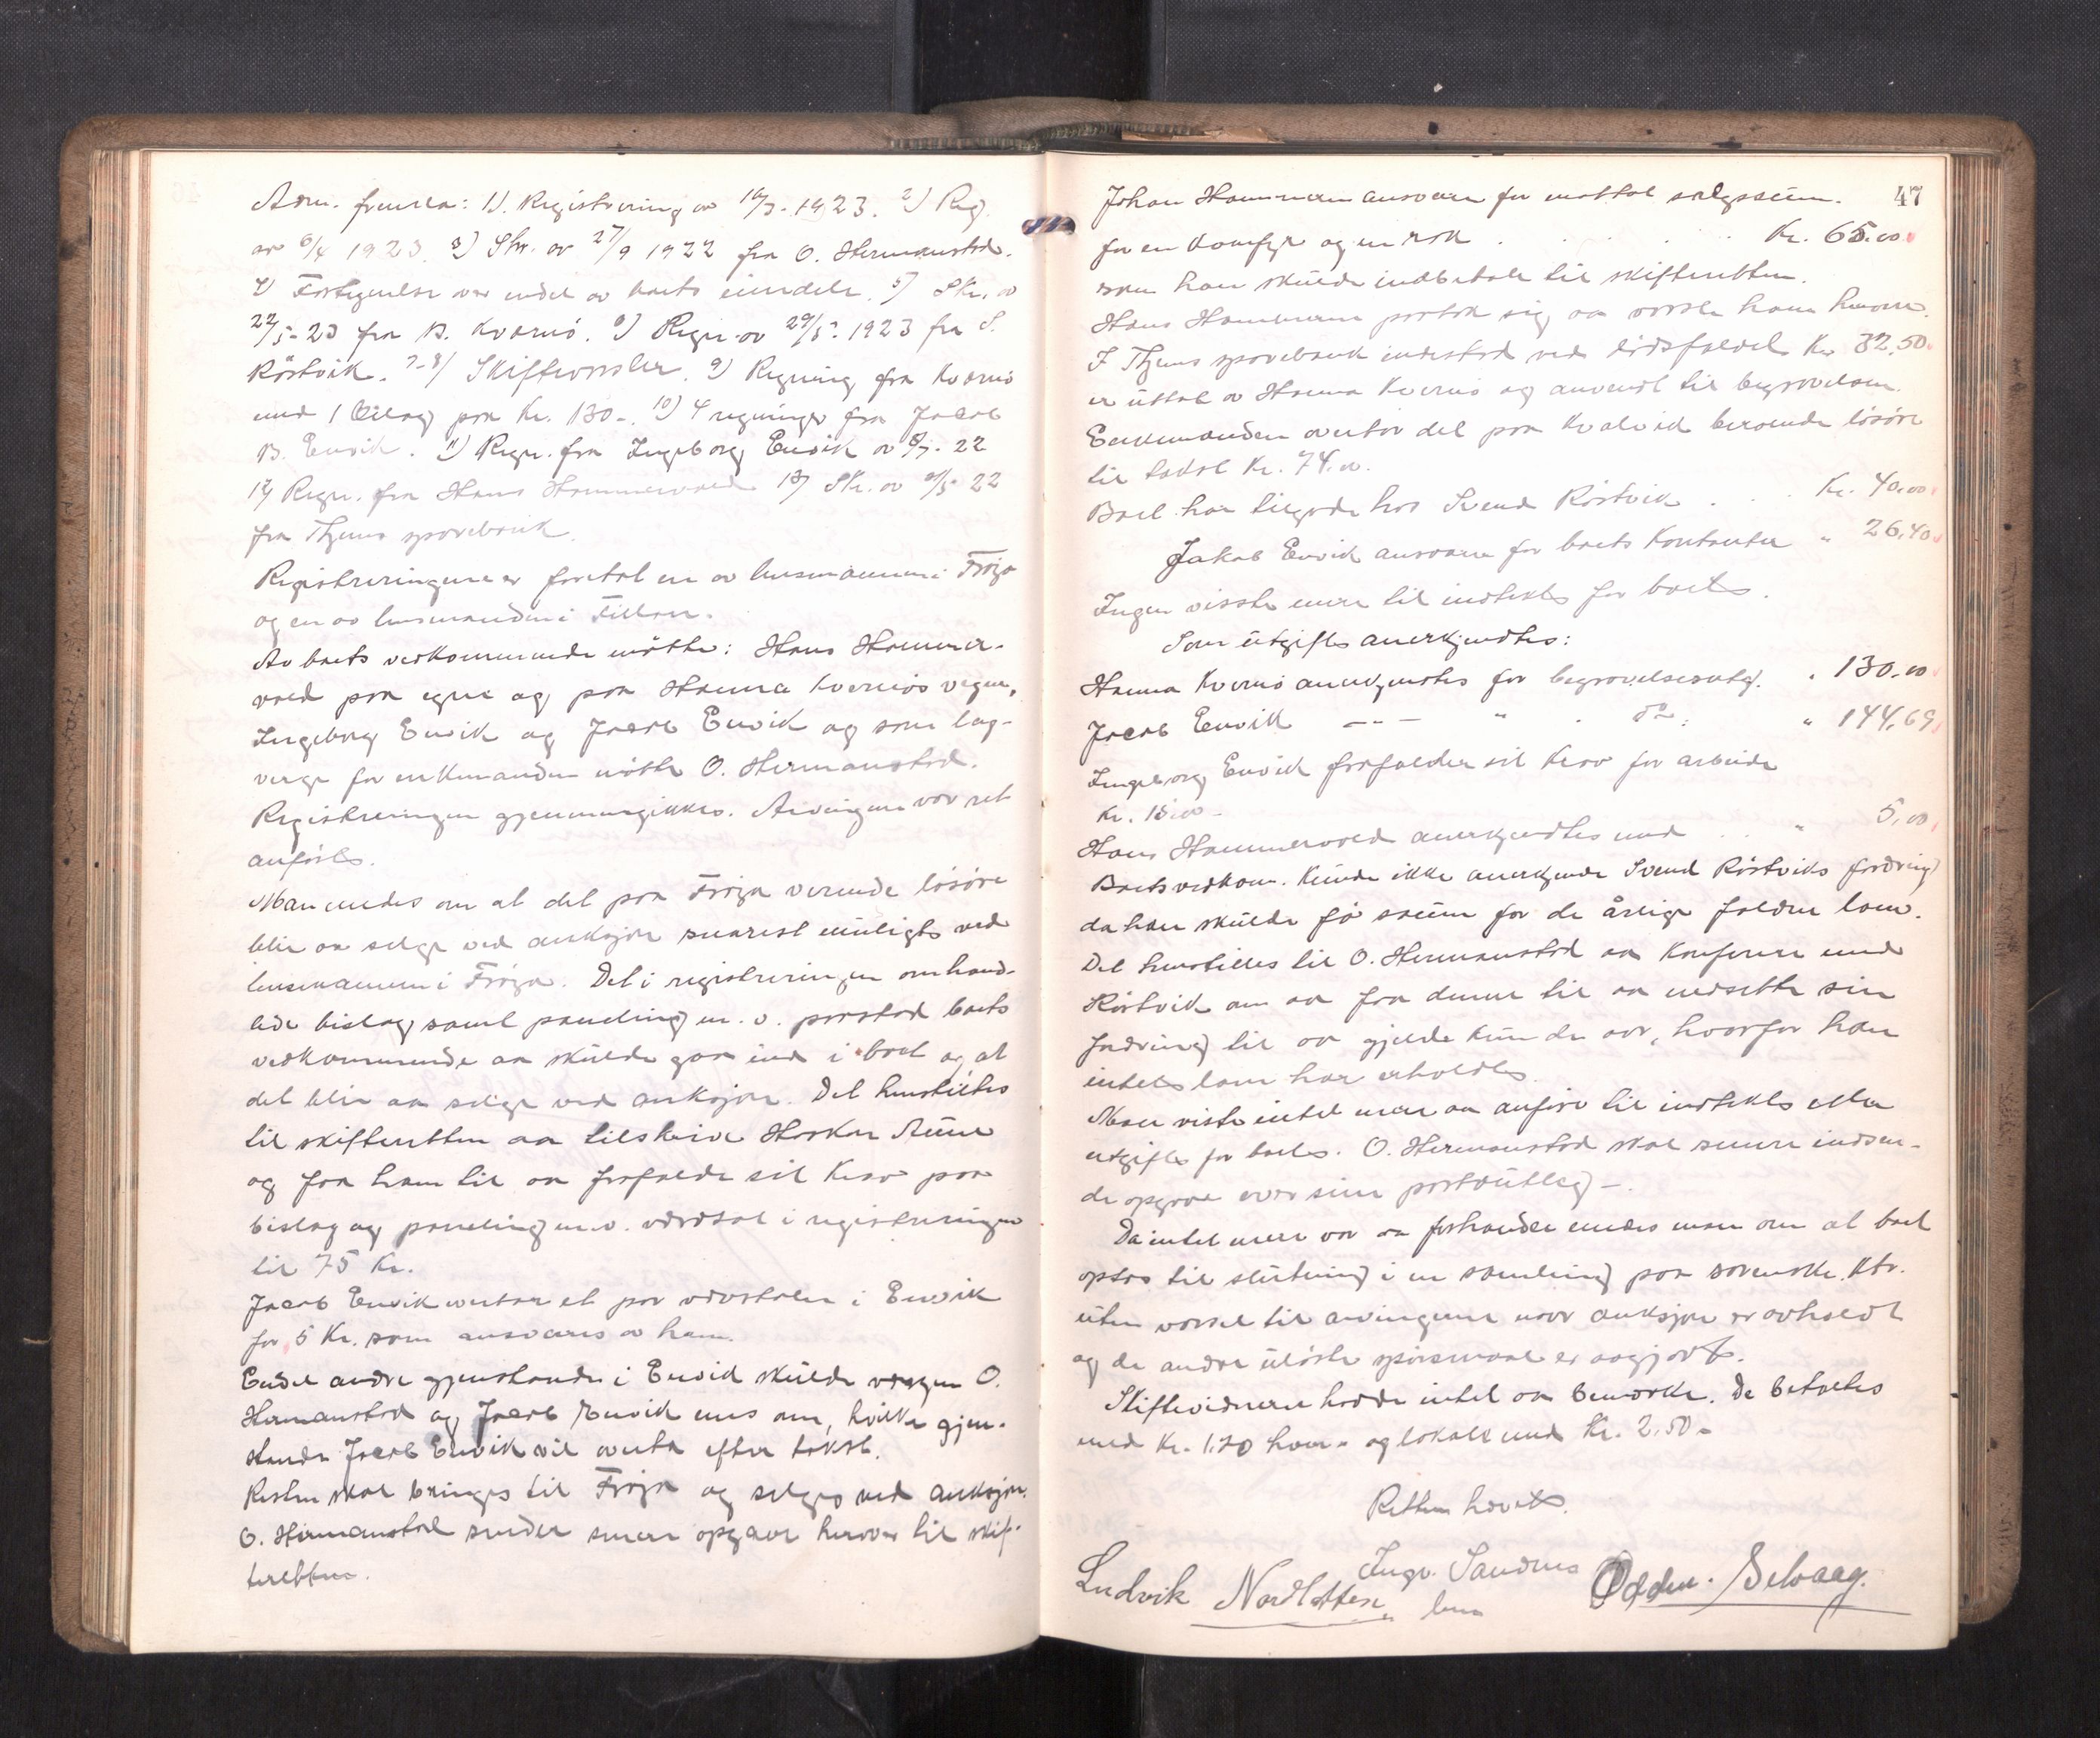 Adm. fremla: 1). Registrering av 16/3. 1923. 2) Reg.
av 6/4 1923. 3) Skr. av 27/9 1922 fra O. Hermanstad.
4) Fortegnelse over endel av boets eiendele. 5) Skr. av
22/5-23 fra B. Kvernö. 6) Regn. av 29/5. 1923 fra S.
Röstvik. 7-8) Skiftevarsler. 9) Regning fra Kvernö
med 1 bilag paa Kr. 130-. 10) 4 regninger fra Jacob
B. Envik. 11) Regn. fra Ingeborg Envik av 8/7. 22
12) Regn. fra Hans Hammervold 13) Skr. av /5 22
fra Thems sparebank.
Registreringene er foretat en av lensmannen i Fröya
og en av lensmanden i Fillan.
Av boets vedkommende mötte: Hans Hammer-
vold paa egne og paa Hanna Kvernös vegne,
Ingeborg Envik og Jacob Envik og som lag-
verge for enkemanden mötte O. Hermanstad.
Registreringen gjennemgikkes. Arvingene var ret
anförte.
Man enedes om at det paa Fröya værende lösöre
blir aa selge ved auksjon snarest muligt ved
lensmannen i Fröya. Det i registreringen omhand-
lede bislag samt paneling m. v. paastod boets
vedkommende aa skulde gaa ind i boet og at
det blir aa selge ved auksjon. Det henstilles
til skifteretten aa tilskrive Haakon Aune
og faa ham til aa frafalde sit krav paa
bislag og paneling m.v. værdsat i registreringen
til 75 Kr.
Jacob Envik overtar et par vævstoler i Envik
for 5 Kr. som ansvares av ham.
Endel andre gjenstande i Envik skulde vergen O.
Hermanstad og Jacob Envik enes om, hvilke gjen-
stande Jacob Envik vil overta efter takst.
Resten skal bringes til Fröya og selges ved auksjon.
O. Hermanstad sender senere opgave herover til skif-
teretten.
47
Johan Hammeren ansvarer for mottat salgssum.
for en komfyr og en rok . . . . Kr. 65.00
som han skulde indbetale til skifteretten.
Hans Hammeren paatok sig aa varsle ham herom.
I Thems sparebank indestod ved dödsfaldet Kr. 32,50.
er uttat av Hanna Kvernö og anvendt til begravelsen.
Enkemanden overtar det paa Kvalvik beroende lösöre
til takst Kr. 74.00.
Boet har tilgode hos Svend Röstvik . . . Kr. 40,00
Jakob Envik ansvarer for boets kontanter " 26,40
Ingen visste mere til indtekt for boet.
Som utgifter anerkjendtes:
Hanna Kvernö anerkjendtes for begravelsesutg. " 130,00
Jacob Envik -"- " do. " 144,69
Ingeborg Envik frafalder sit krav for arbeide
Kr. 15.00-
Hans Hammervold anerkjendtes med . . " 5,00
Boets vedkom. kunde ikke anerkjende Svend Röstviks fordring
da han skulde få sauen for de årlige foldne lam.
Det henstilles til O. Hermanstad aa konferere med
Röstvik om aa faa denne til aa nedsette sin
fordring til aa gjelde kun de aar, hvorfor han
intet lam har erholdt.
Man viste intet mere aa anföre til indtekt eller
utgift for boet. O. Hermanstad skal senere indsen-
de opgave over sine portoutlæg -.
Da intet mere var aa forhandle enedes man om at boet
optas til slutning i en samling paa sorenskr. ktr.
uten varsel til arvingene naar auksjon er avholdt
og de andre ulöste spörsmaal er avgjort.
Skiftevidnene hadde intet aa bemerke. De betaltes
med Kr. 1.20 hver - og lokale med Kr. 2.50-
Retten hævet.
Ingv. Sandnes
Ludvik Nordlotten lens Odden. Selvaag.